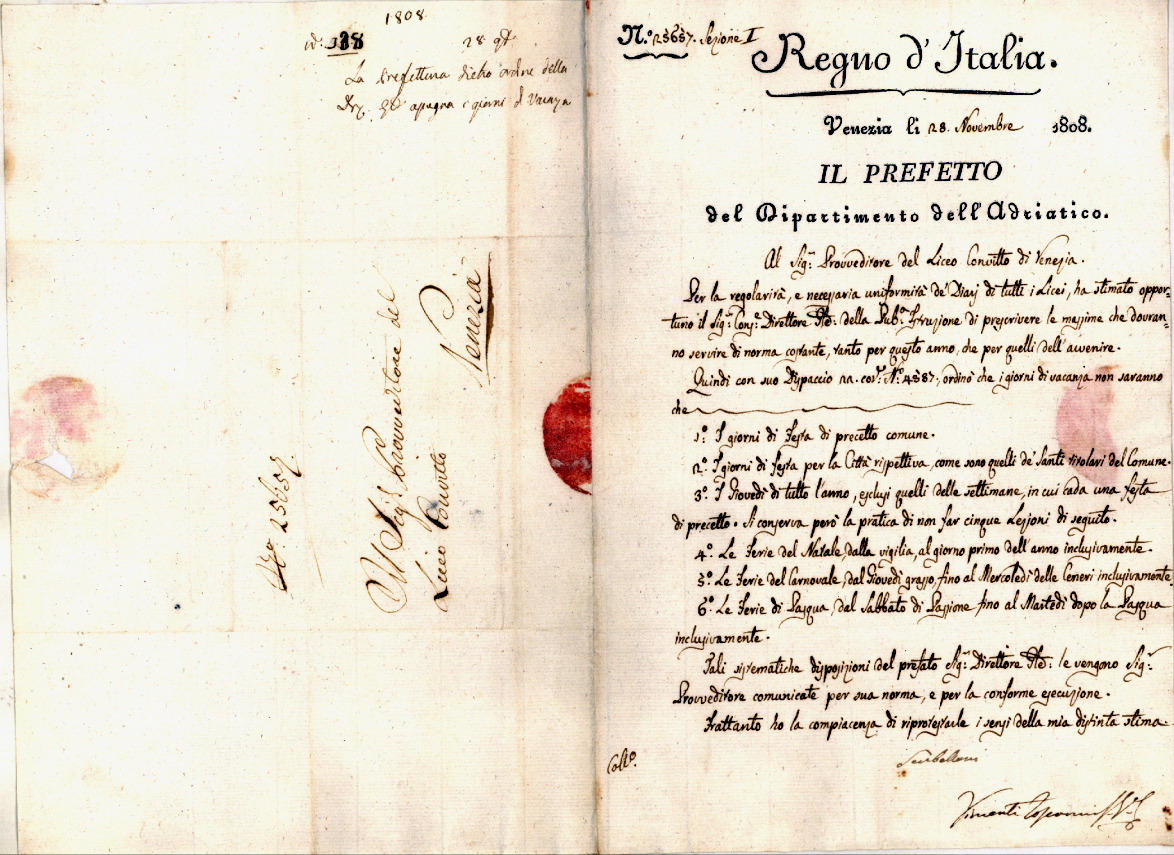 1808
28
La Prefettura dietro ordine della
i giorni di Vacanza
Al Sigr Provveditore del
Liceo Convitto
Venezia
No. 25657.
N.o 25657. Sezione I
Regno d'Italia.
Venezia li 28. Novembre 1808.
IL PREFETTO
del Dipartimento dell'Adriatico.
Al Sigr: Provveditore del Liceo Convitto di Venezia.
Per la regolarità, e necessaria uniformità de' Diarj di tutti i Licei, ha stimato oppor-
tuno il Sigr: Consr: Direttore Gle: della Pubca: Istruzione di prescrivere le massime che dovran-
no servire di norma costante, tanto per questo anno, che per quelli dell'avvenire.
Quindi con suo Dispaccio 22. corr: No: 4587., ordinò che i giorni di vacanza non saranno
che
1o: I giorni di Festa di precetto comune.
2o: I giorni di festa per la Città rispettiva, come sono quelli de' Santi titolari del Comune.
3o: I Giovedì di tutto l'anno, esclusi quelli delle settimane, in cui cada una festa
di precetto. Si conserva però la pratica di non far cinque Lezioni di seguito.
4o: Le Ferie del Natale, dalla vigilia, al giorno primo dell'anno inclusivamente.
5o: Le Ferie del Carnovale, dal Giovedì grasso, fino al Mercoledì delle Ceneri inclusivamente
6o: Le Ferie di Pasqua, dal Sabbato di Passione fino al Martedì dopo la Pasqua
inclusivamente.
Tali sistematiche disposizioni del prefato Sigr: Direttore Gle: le vengono Sigr:
Provveditore comunicate per sua norma, e per la conforme esecuzione.
Frattanto ho la compiacenza di riprotestarle i sensi della mia distinta stima.
Serbelloni